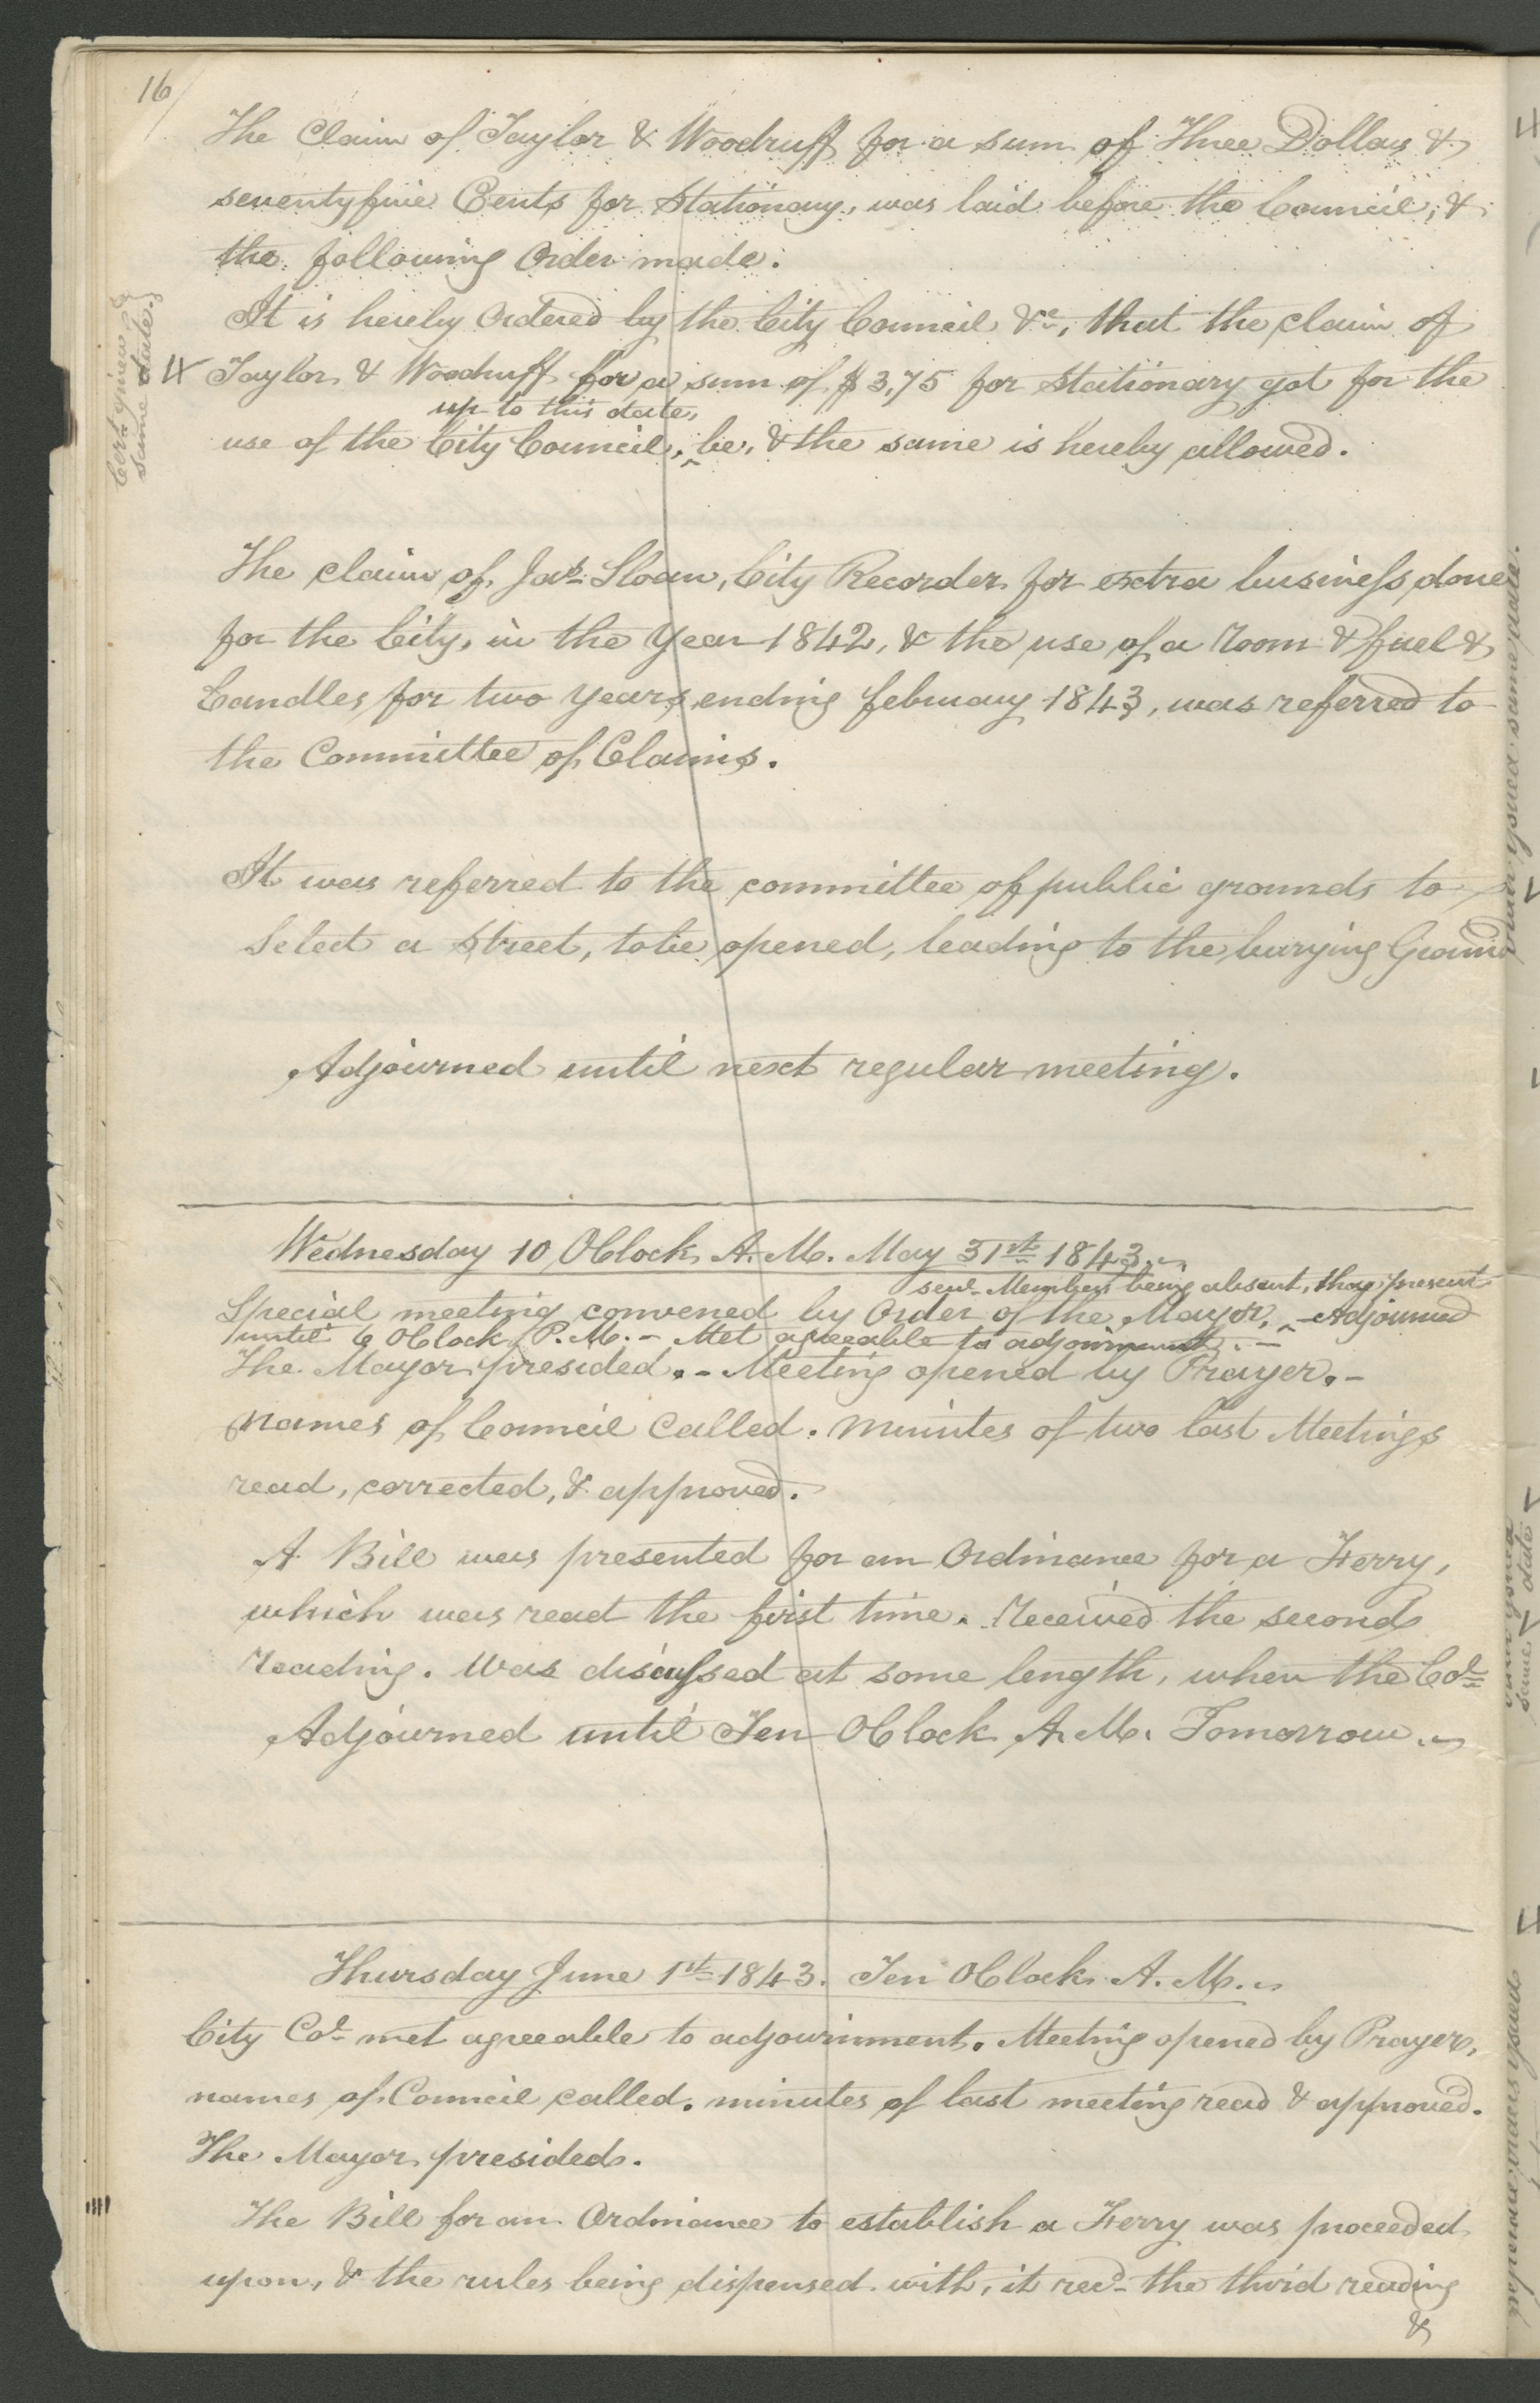 16
The Claim of Taylor & Woodruff for a sum of Three Dollars &
seventyfive Cents for Stationary, was laid before the Council, &
the following Order made.
It is hereby Ordered by the City Council &c, that the claim of
Taylor & Woodruff for a sum of $3,75 for Stationary got for the
up to this date,
use of the City Council, ^ be, & the same is hereby allowed.
Cert. given
same date.}
The claim of Jas. Sloan, City Recorder for extra business done
for the City, in the Year 1842, & the use of a room & fuel &
Candles for two years ending february 1843, was referred to
the Committee of Claims.
It was referred to the committee of public grounds to
Select a Street, to be opened, leading to the burying Ground
Adjourned until next regular meeting.
Wednesday 10 OClock A.M. May 31st 1843.
sevl. Members being absent, they present
Special meeting convened by Order of the Mayor, ^ - Adjourned
until 6 OClock P.M. - Met agreeable to adjournment. -
The Mayor presided. - Meeting opened by Prayer. -
names of Council Called. Minutes of two last Meetings
read, corrected, & approved.
A Bill was presented for an Ordinance for a Ferry,
which was read the first time. Received the second
reading. Was discussed at some length, when the Col
Adjourned until Ten OClock A.M. Tomorrow.
Thursday June 1st 1843. Ten OClock A.M.
City Col met agreeable to adjournment. Meeting opened by Prayer,
names of Council called. minutes of last meeting read & approved.
The Mayor presided.
The Bill for an Ordinance to establish a Ferry was proceeded
upon, & the rules being dispensed with, it recd. the third reading
&